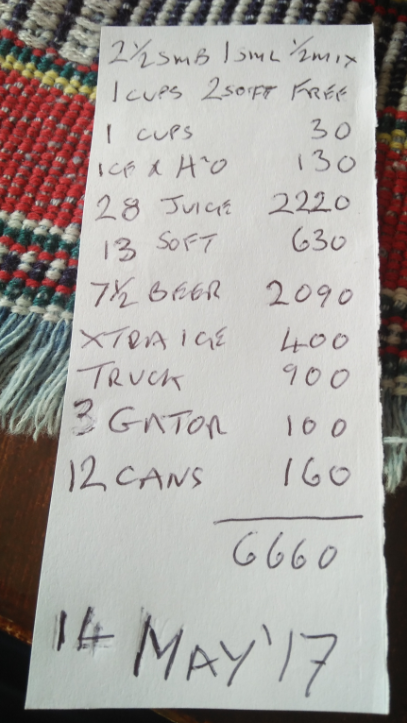 2½ SMB 1 SML ½ MIX
1 CUPS 2 SOFT FREE
1 CUPS 30
ICE & H²O 130
28 JUICE 2220
13 SOFT 630
7½ BEER 2090
XTRA ICE 400
TRUCK 900
3 GATOR 100
12 CANS 160
6660
14 MAY '17